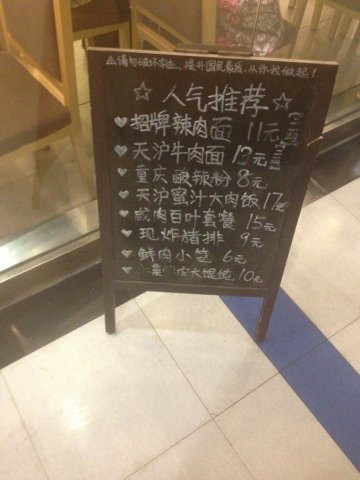 ⚠请勿破坏字迹，提升国民素质，从你我做起！
☆人气推荐☆
♥招牌辣肉面 11元
♥天沪牛肉面 13元
♥重庆酸辣粉 8元
♥天沪蜜汁大肉饭 17元
♥咸肉百叶套餐 15元
♥现炸猪排 9元
♥鲜肉小笼 6元
♥ 肉大馄饨 10元